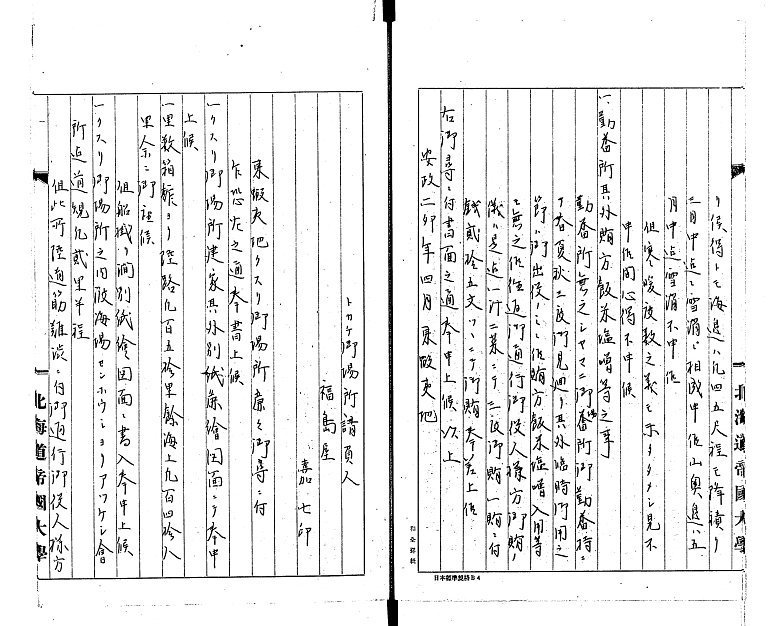 リ候得トモ海邊ハ凡四五尺程モ降積リ
二月中迄ニ雪消ニ相成申候山奥邊ハ五
月中迄雪消不申候
但寒暖度数之義モホタメシ見不
申候間心得不申候
一、勤番所其外賄方飯米塩噌等之事
勤番所無之シヤマニ御場所御勤番時ニ
春夏秋三度御見廻リ其外臨時御用之
節ハ御出役ノミニ候賄方飯米塩噌入用等
モ無之候往返御通行御役人様方御賄ノ
儀ハ是迄一汁二菜ニテ三度御賄一賄ニ付
銭貳拾五文ツヽニテ御賄奉差上候
右御尋ニ付書面之通奉申上候以上
安政二卯年四月 東蝦夷地
トカチ御場所請負人
福島屋
嘉七印
東蝦夷地クスリ御場所廉々御尋ニ付
乍恐左之通奉書上候
一クスリ御場所建家其外別紙麁繪図面ニテ奉申
上候
一里数箱館ヨリ陸路凡百五拾里餘海上凡百四拾八
里余ニ御座候
但船澗ノ澗別紙繪図面ニ書入奉申上候
一クスリ御場所之内砂海陽センホウシヨリアツケシ會
所迄道規凡貳里半程
但此所陸通筋難渋ニ付御通行御役人様方
北海道帝國大學
北海道帝國大學
日本標準規格B4